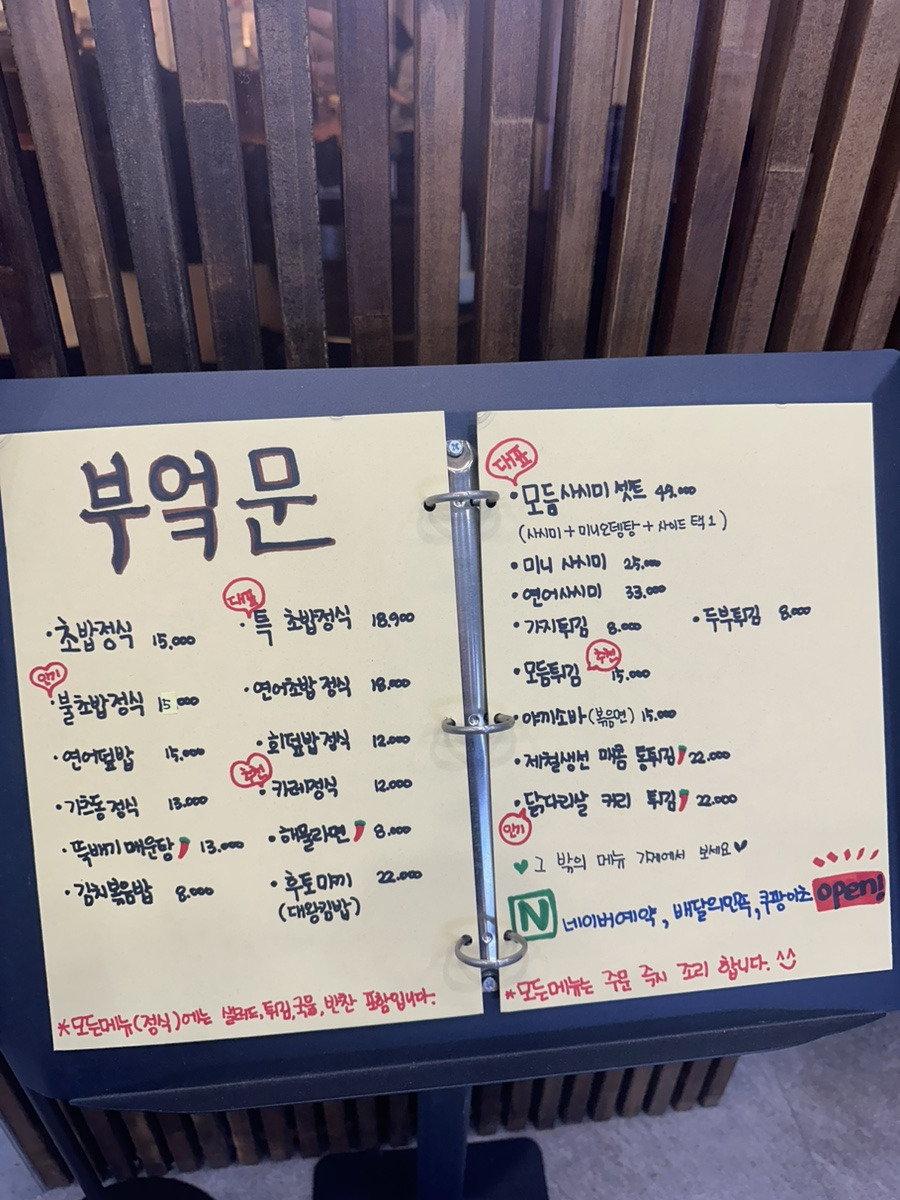 부엌문
·초밥정식 15,000
대표
·특 초밥정식 18.900
인기
·불초밥정식 15,000
·연어초밥정식 18.000
·연어덮밥 15,000
·회덮밥정식 12.000
·기츠동정식 13.000
추천
·카레정식 12.000
·뚝배기 매운탕 13.000
·해물라면 8.000
·김치볶음밥 8.000
·후토마끼 22.000
(대왕김밥)
*모든메뉴(정식)에는 샐러드,튀김,국물,반찬 포함입니다.
대표
·모듬사시미 셋트 49.000
(사시미+미니오뎅탕+사이드 택1)
·미니 사시미 25.000
·연어사시미 33.000
·가지튀김 8.000 ·두부튀김 8.000
추천
·모듬튀김 15.000
·야끼소바(볶음면) 15.000
·제철생선 매콤 통튀김 22.000
·닭다리살 커리 튀김 22.000
인기
그 밖의 메뉴 가게에서 보세요
N 네이버예약, 배달의민족,쿠팡이츠 open!
*모든메뉴는 주문 즉시 조리 합니다. ^^